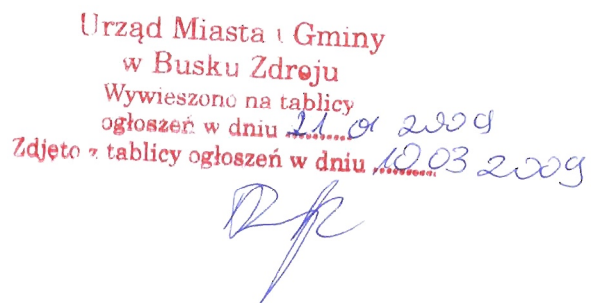 Urząd Miasta i Gminy
w Busku Zdroju
Wywieszono na tablicy
ogłoszeń w dniu 21.01 2009
Zdjęto z tablicy ogłoszeń w dniu 10.03 2009